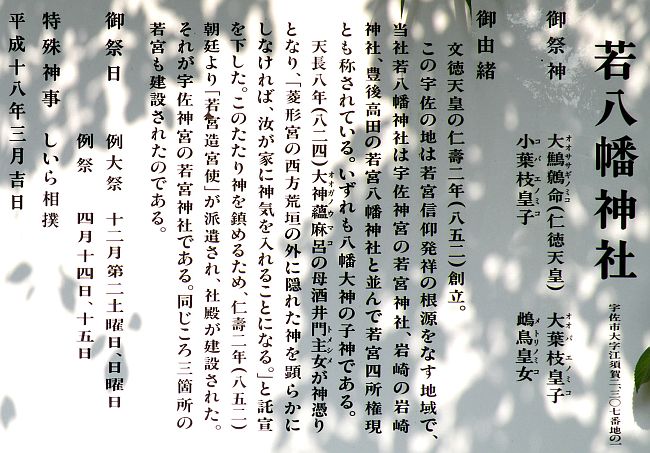 若八幡神社
宇佐市大字江須賀二、三〇七番地の一
御祭神 大鷦鷯命(仁徳天皇) 大葉枝皇子
オオササギノミコ オオバエノミコ
小葉枝皇子 鴟鳥皇女
コバエノミコ メトリノミコ
御由緒
文徳天皇の仁壽二年(八五二)創立。
この宇佐の地は若宮信仰発祥の根源をなす地域で、
当社若八幡神社は宇佐神宮の若宮神社、岩崎の岩崎
神社、豊後高田の若宮八幡神社と並んで若宮四所権現
とも称されている。いずれも八幡大神の子神である。
天長八年(八二四)大神蘊麻呂の母酒井門主女が神憑り
オオガノウマコ トメシメ
となり、「菱形宮の西方荒垣の外に隠れた神を顕らかに
しなければ、汝が家に神気を入れることになる。」と託宣
を下した。このたたり神を鎮めるため、仁壽二年(八五二)
朝廷より「若宮造宮使」が派遣され、社殿が建設された。
それが宇佐神宮の若宮神社である。同じころ三箇所の
若宮も建設されたのである。
御祭日 例大祭 十二月第二土曜日、日曜日
例祭 四月十四日、十五日
特殊神事 しいら相撲
平成十八年三月吉日